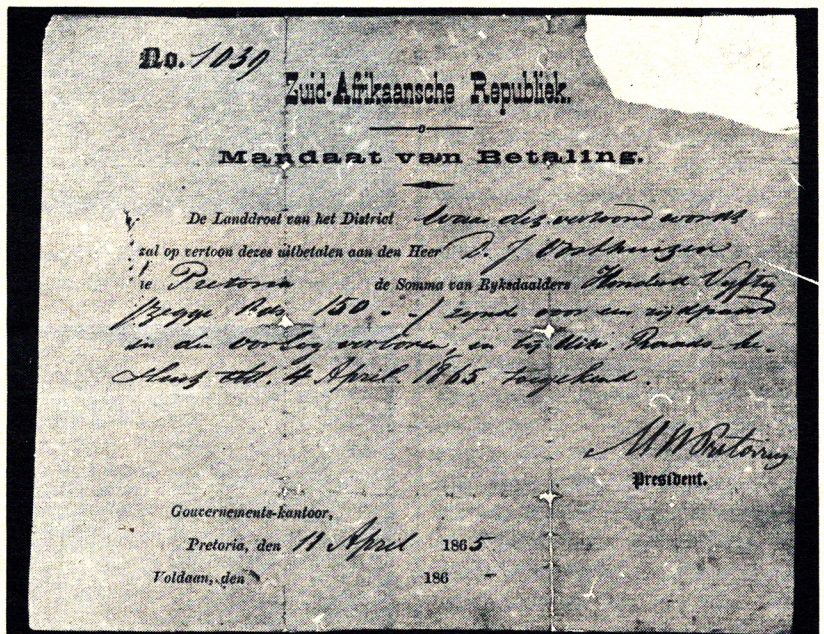 No. 1039
Zuid-Afrikaansche Republiek.
Mandaat van Betaling.
De Landdrost van het District waar dez vertoond wordt
zal op vertoon dezes uitbetalen aan den Heer D. J. Oosthuizen
te Pretoria de Somma van Ryksdaalders Honderd Vyftig
(zegge Rds. 150 „ „) zynde voor een rydpaard
in den oorlog verloren, en by Uitv. Raads-be-
sluit dd. 4 April 1865 toegekend.
M W Pretorius
President.
Gouvernements-kantoor,
Pretoria, den 11 April 1865
Voldaan, den 186